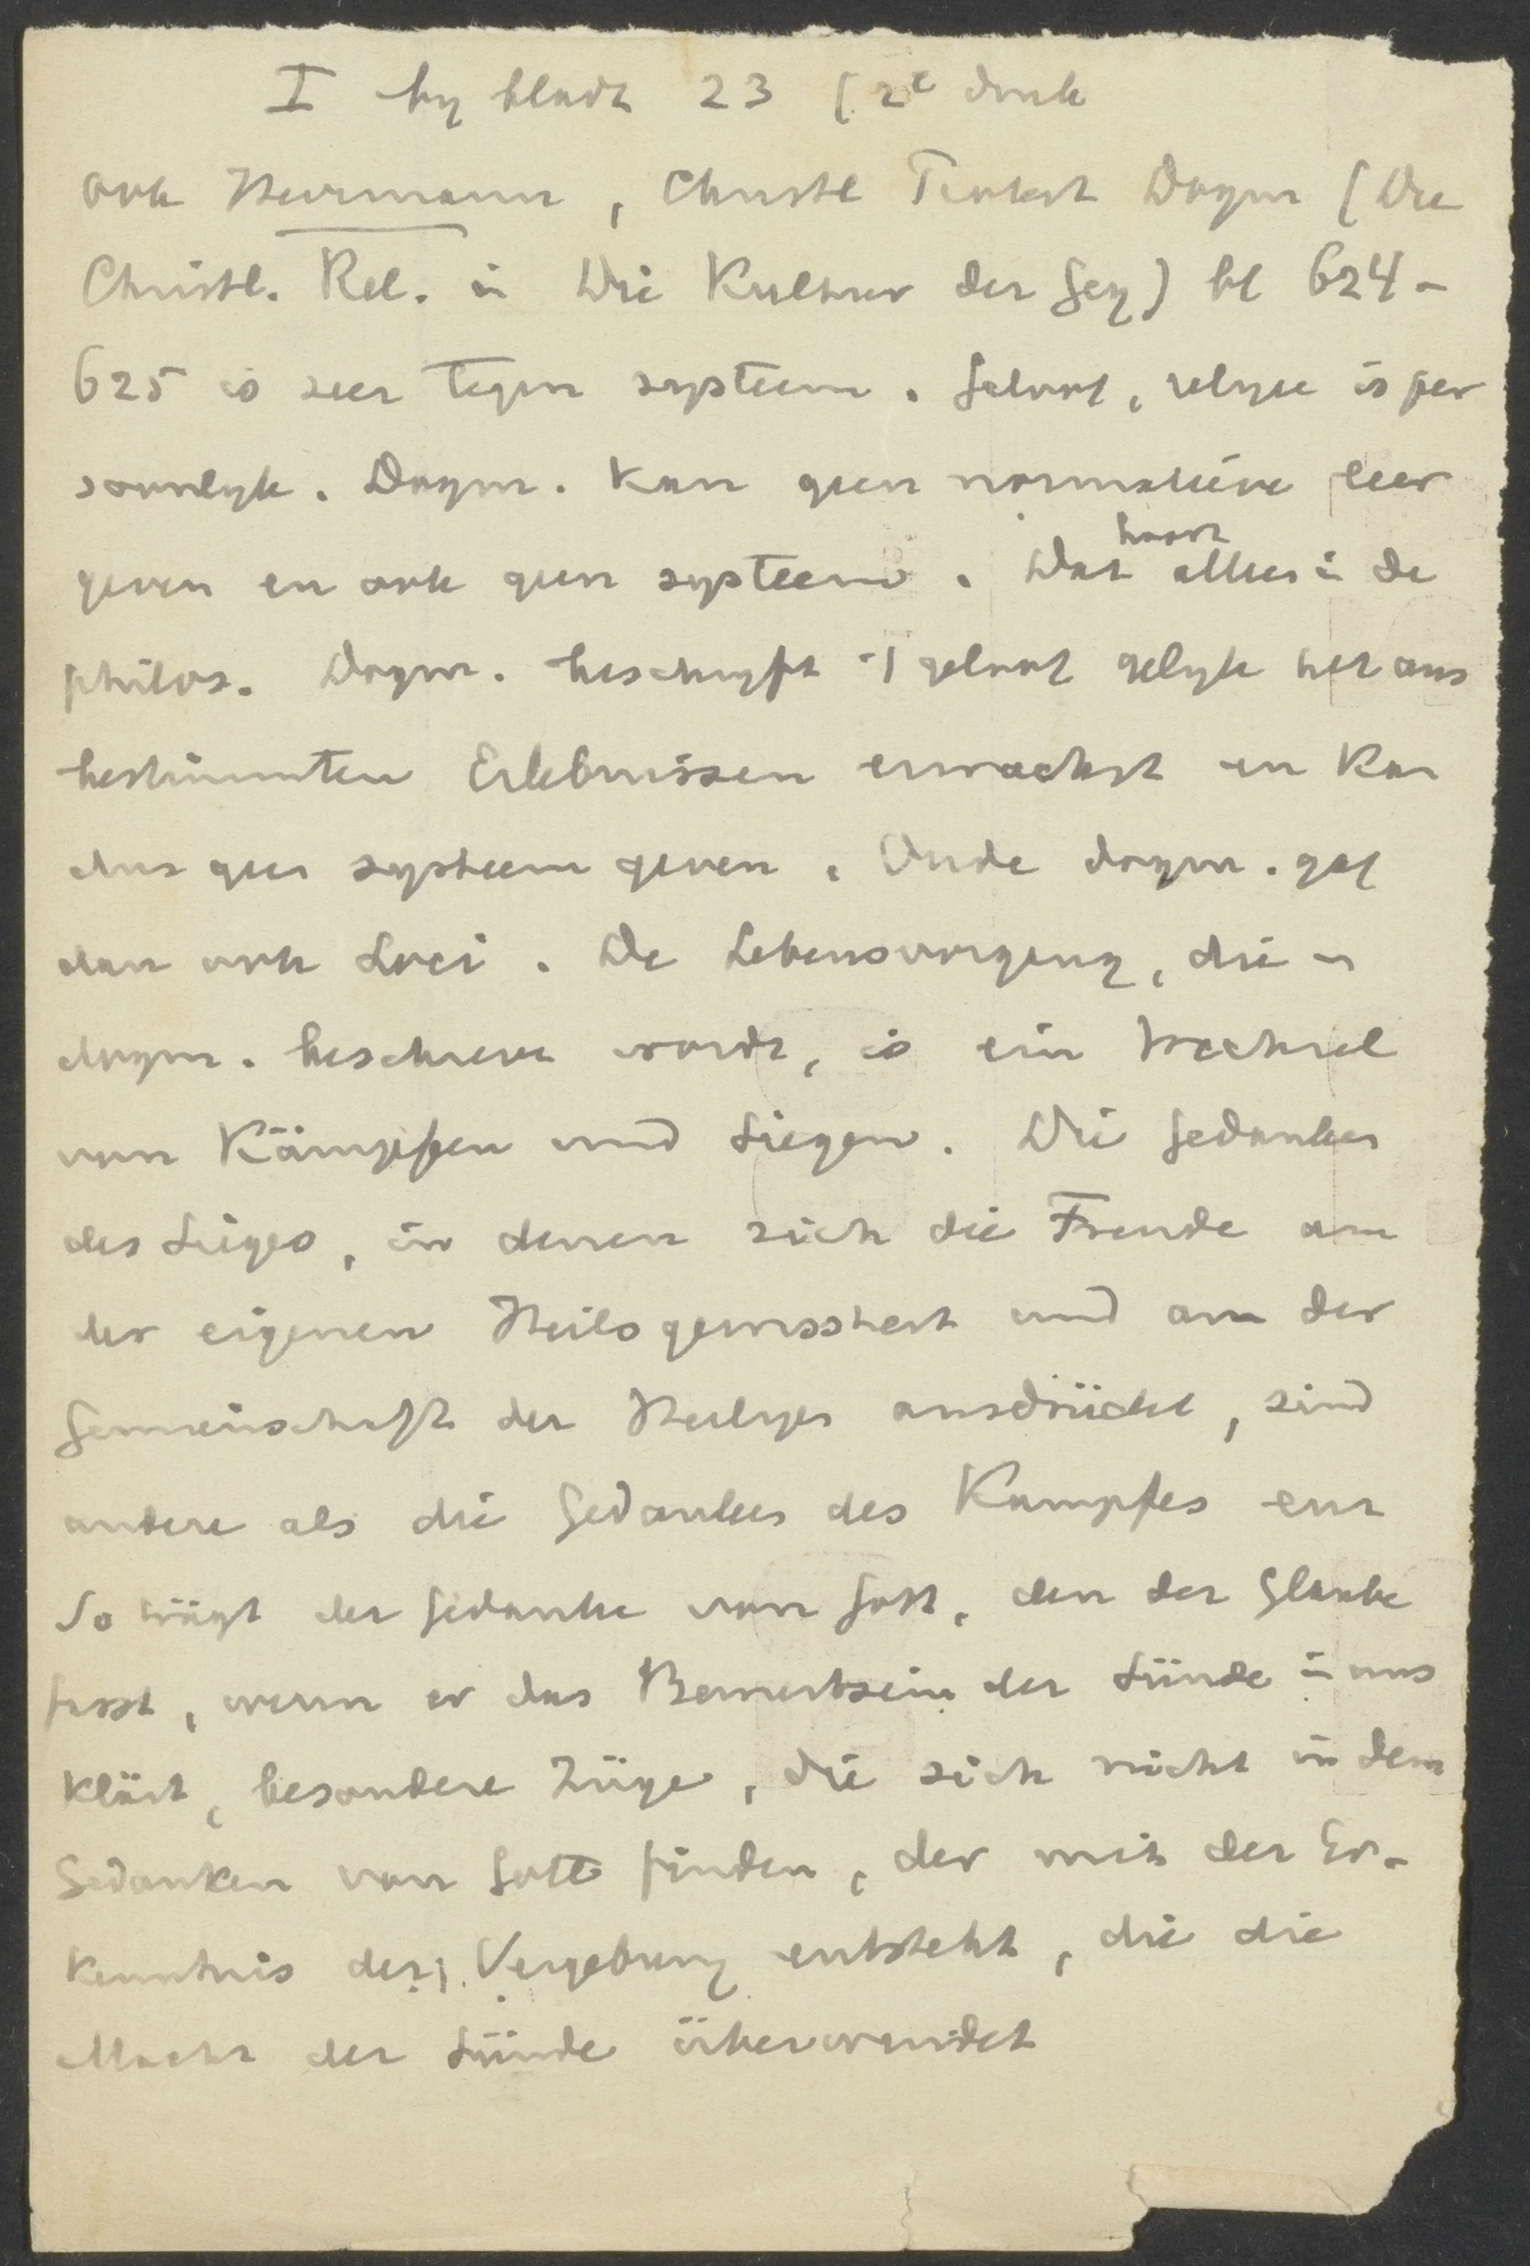 I by bladz 23 (2e druk
ook Herrmann, Christl Protest Dogm (Die
Christl. Rel. in Die Kultur der Geg) bl 624-
625 is zeer tegen systeem. Geloof, religie is per
soonlyk. Dogm. kan geen normatieve leer
geven en ook geen systeem. Dat hoort alleen in de
philos. Dogm. beschryft 't geloof gelyk het aus
bestimmten Erlebnissen erwächst en kan
dus geen systeem geven. Oude dogm. gaf
dan ook Loci. De Lebensvorgang, die in
dogm. beschreven wordt, is ein Wechsel
von Kämpfen und Siegen. Die Gedanken
des Sieges, in denen sich die Freude an
der eigenen Heilsgewissheit und an der
Gemeinschaft der Heiligen ausdrückt, sind
andere als die Gedanken des Kampfes enz
So trägt der Gedanke von Gott, den der Glaube
fasst, wenn er das Bewustsein der Sünde in uns
klärt, besondere Züge, die sich nicht in dem
Gedanken von Gott finden, der mit der Er-
kenntnis der Vergebung entsteht, die die
Macht der Sünde überwindet